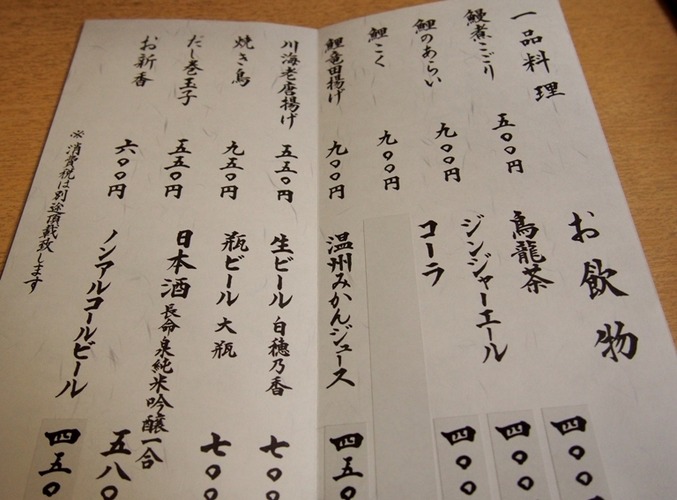 一品料理
鰻煮こごり 五〇〇円
鯉のあらい 九〇〇円
鯉こく 九〇〇円
鯉竜田揚げ 九〇〇円
川海老唐揚げ 五五〇円
焼き鳥 九五〇円
だし巻玉子 五五〇円
お新香 六〇〇円
※消費税は別途頂載致します
お飲物
烏龍茶 四〇〇
ジンジャーエール 四〇〇
コーラ 四〇〇
温州みかんジュース 四五〇
生ビール 白穂乃香 七〇〇
瓶ビール 大瓶 七〇〇
日本酒 長命泉純米吟醸一合 五八〇
ノンアルコールビール 四五〇